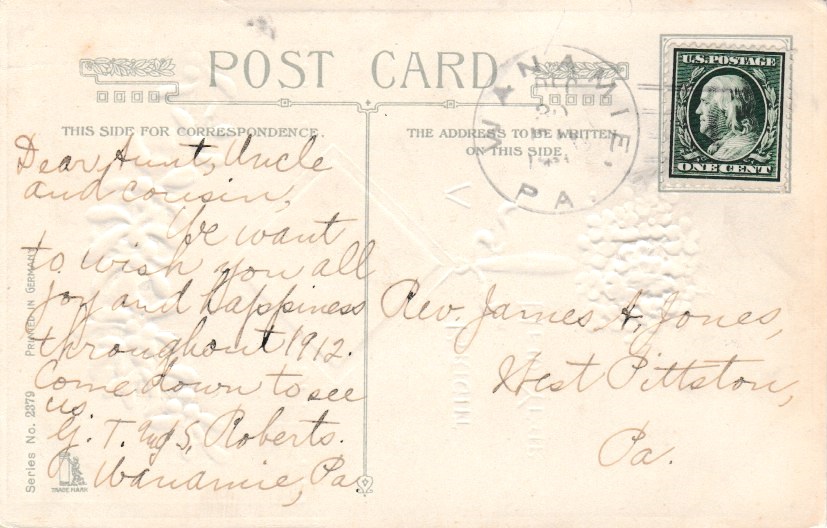 POST CARD
THIS SIDE FOR CORRESPONDENCE.
THE ADDRESS TO BE WRITTEN
ON THIS SIDE.
WANAMIE,
PA.
U.S. POSTAGE
ONE CENT
Dear Aunt, Uncle
and cousin,
We want
to wish you all
joy and happiness
throughout 1912.
Come down to see
us.
G. T. S. Roberts.
Wanamie, Pa.
Rev. James A. Jones,
West Pittston,
Pa.
Series No. 2379 PRINTED IN GERMANY
TRADE MARK